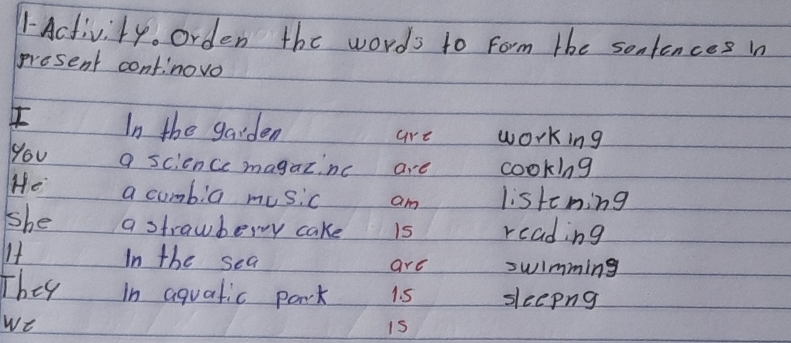 1- Activity. Orden the words to form the sentences in
present continovo
I In the garden are working
You a science magazine are cooking
He a cumbia music am listening
She a strawberry cake is reading
It In the sea are swimming
They In aquatic park is sleepng
We is